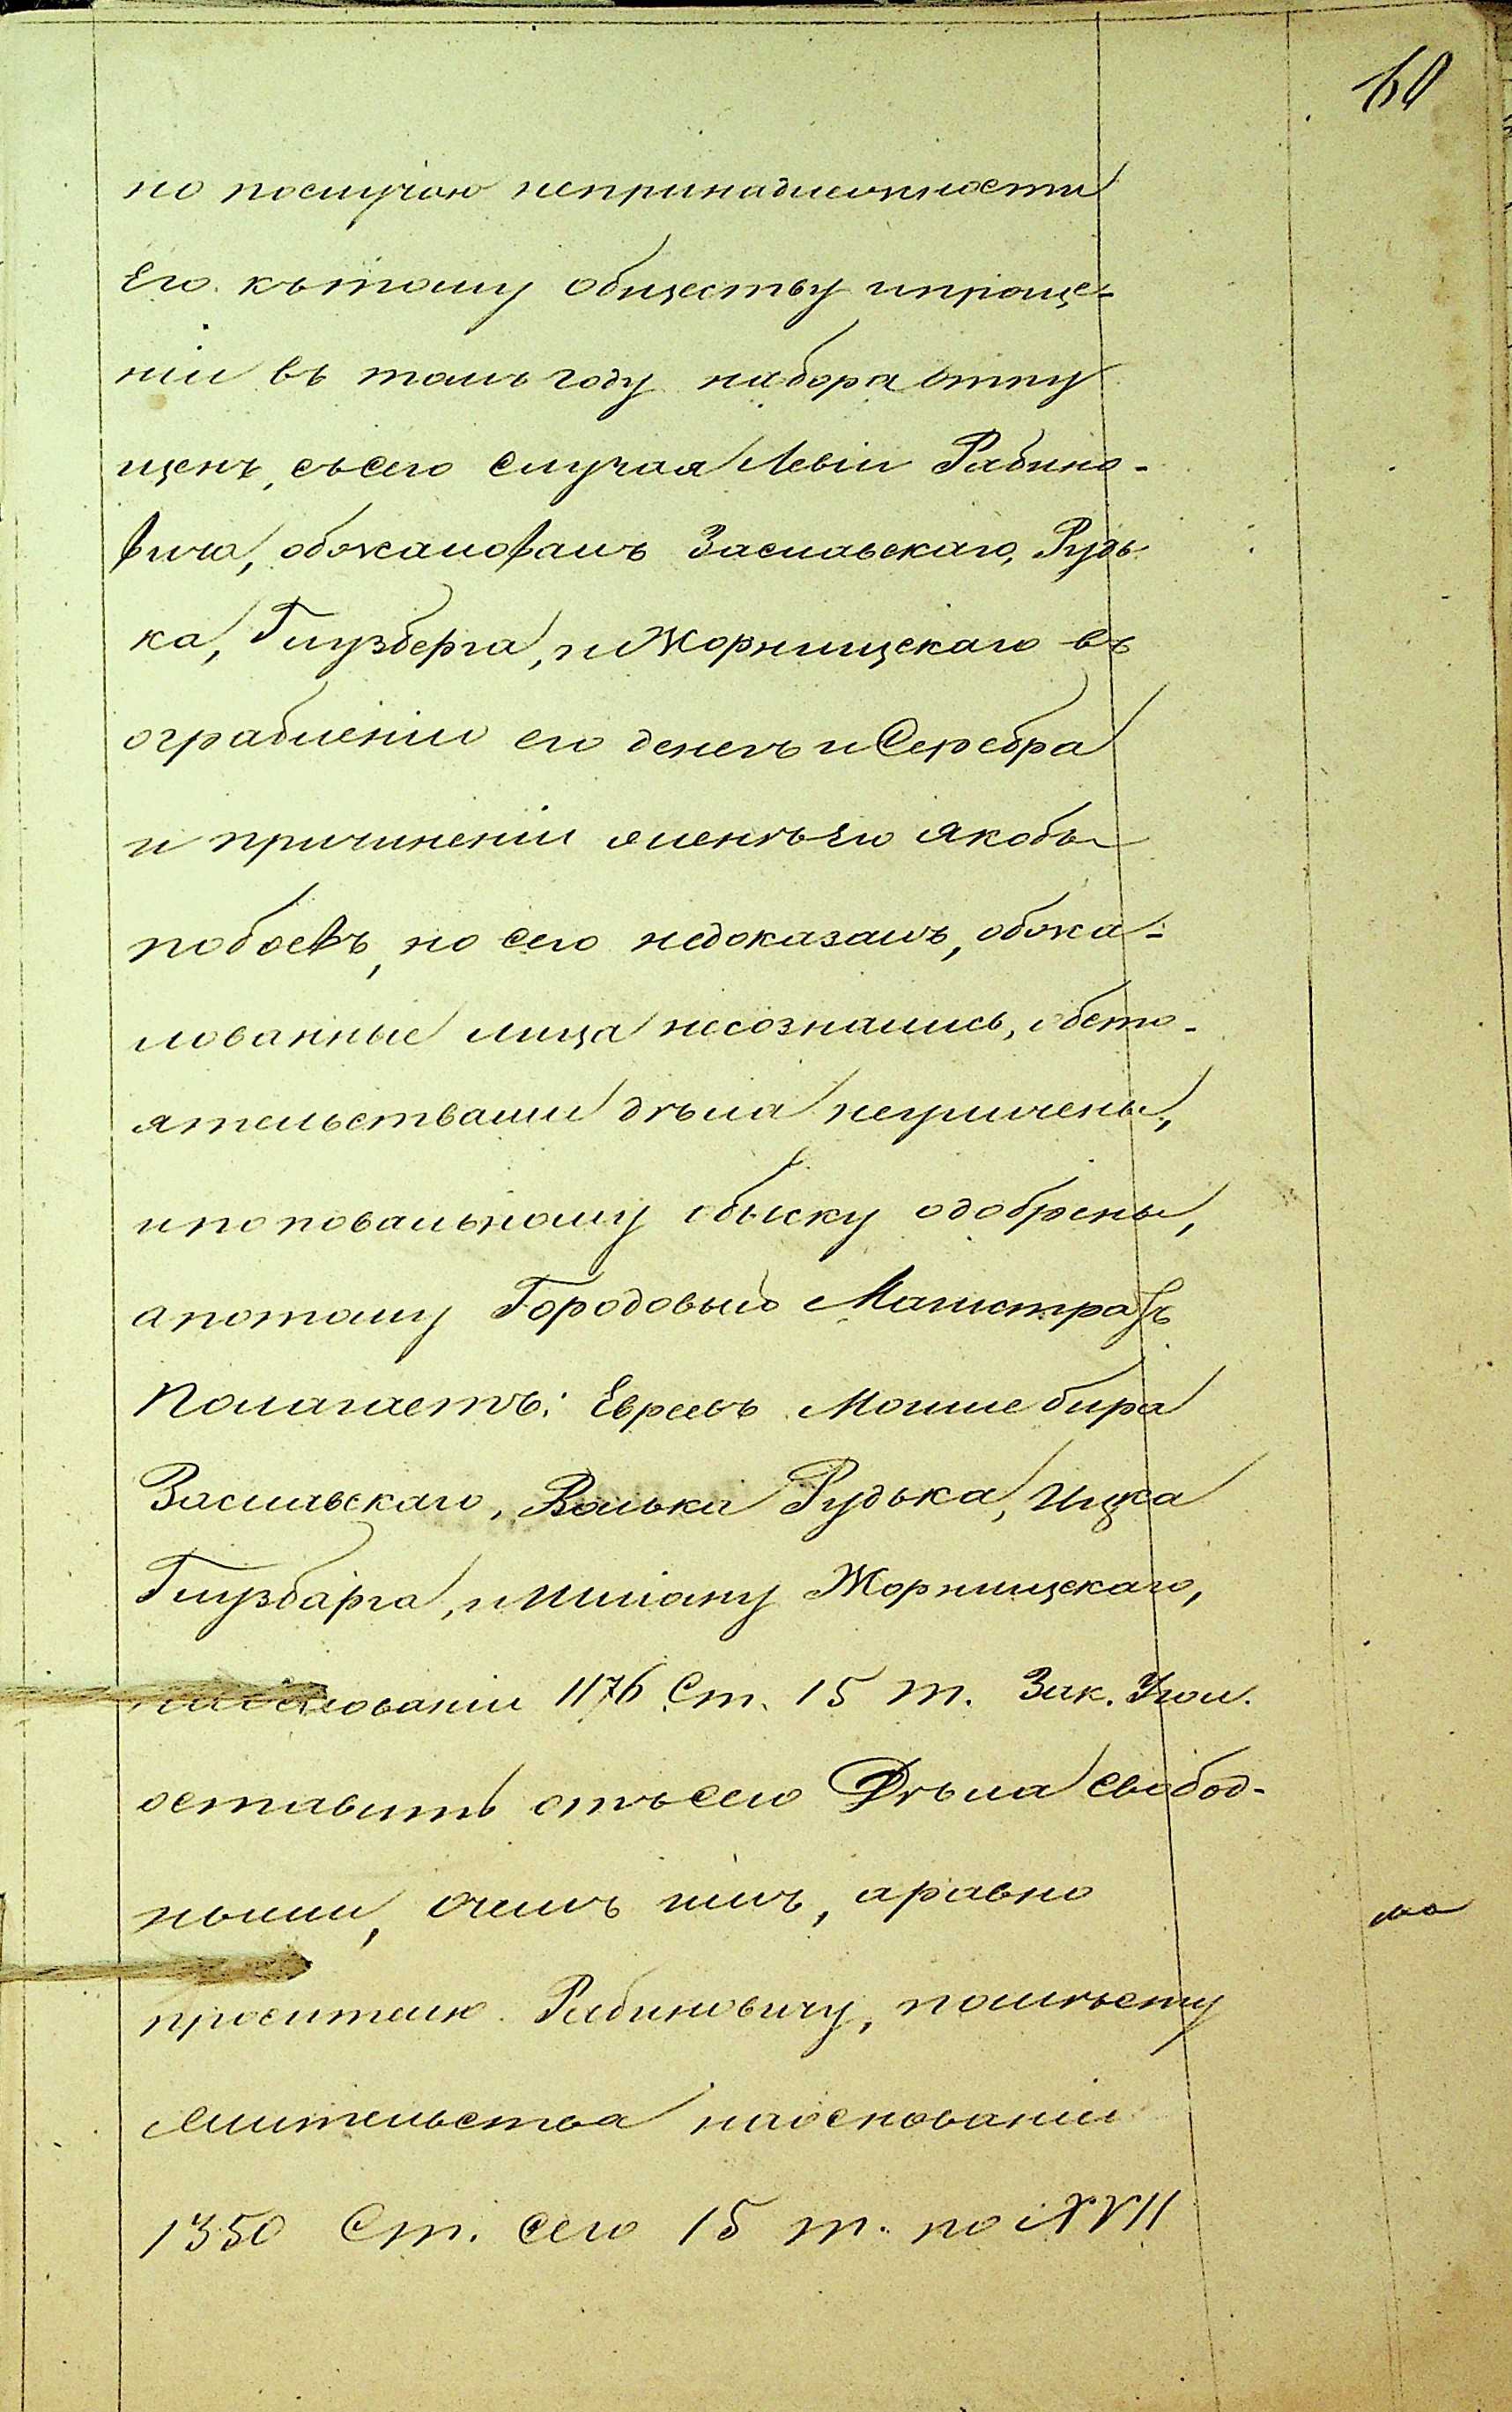 60
но послучаю непринадлежности
Его. къ тому обществу и проще-
ніи въ томъ году набора отпу
щенъ, съ сего случая Левіи Рабино-
вича, обжаловалъ Заславскаго, Рудь
ка, Глузберга, и Жорнищскаго въ
ограбленіи его денегъ и Серебра
и причиненіи женъ Его якобы
побоевъ, но сего недоказалъ, обжа-
лованные лица несознались, обсто-
ятельствами дѣла неуличены,
и поповальному обыску одобрены,
а потому Городовый Магистратъ
Полагаетъ: Евреевъ Мошие бира
Заславскаго, Волька Рудька, Ицка
Глузбарга, и Шліому Жорнищскаго,
наоснованіи 1176 Ст. 15 т. Зак. Угол.
оставить отъ сего Дѣла свобод-
ными, очемъ имъ, а равно
просителю Рабиновичу, помѣсту
жительства наоснованіи
1350 Ст. сего 15 т. по XVII